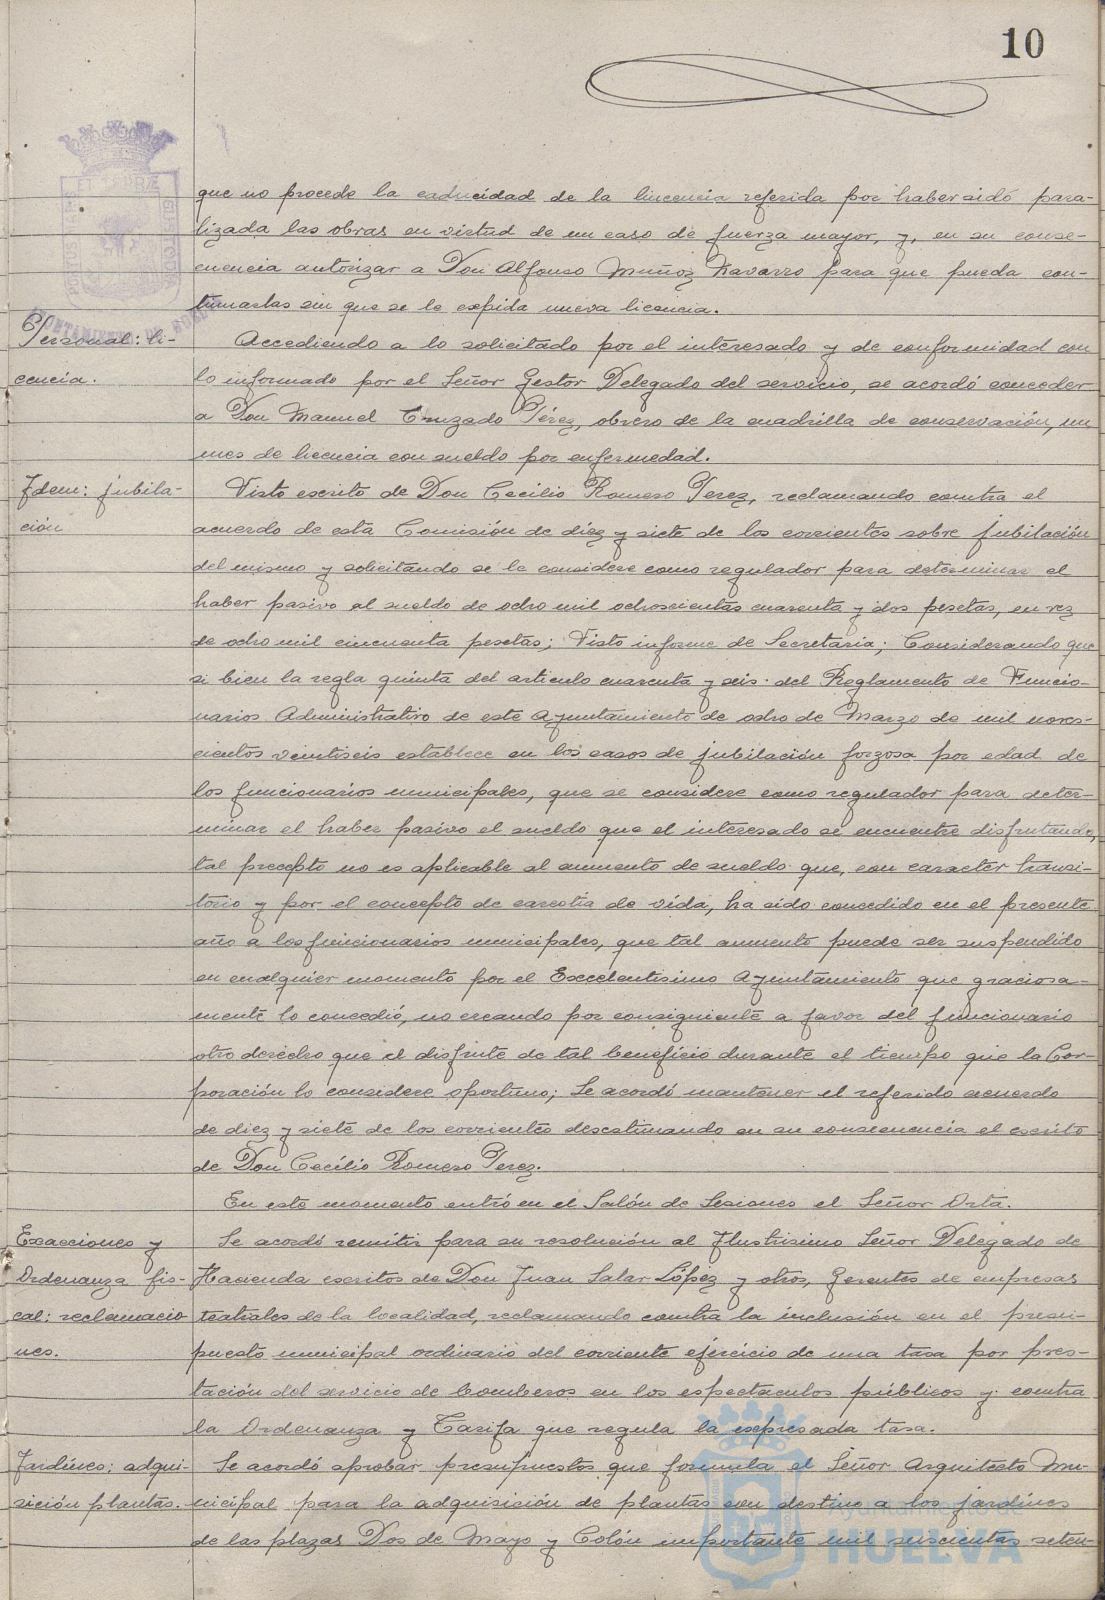 10
que no procede la caducidad de la lincencia referida por haber sido para-
lizada las obras en virtud de un caso de fuerza mayor, y, en su conse-
cuencia autorizar a Don Alfonso Muñoz Navarro para que pueda con-
tinuarlas sin que se le expida nueva licencia.
Personal: li-
cencia.
Accediendo a lo solicitado por el interesado y de conformidad con
lo informado por el Señor Gestor Delegado del servicio, se acordó conceder
a Don Manuel Cruzado Pérez, obrero de la cuadrilla de conservación, un
mes de licencia con sueldo por enfermedad.
Idem: jubila-
ción
Visto escrito de Don Cecilio Romero Perez, reclamando contra el
acuerdo de esta Comisión de diez y siete de los corrientes sobre jubilación
del mismo y solicitando se le considere como regulador para determinar el
haber pasivo al sueldo de ocho mil ochoscientas cuarenta y dos pesetas, en vez
de ocho mil cincuenta pesetas; Visto informe de Secretaria; Considerando que
si bien la regla quinta del articulo cuarenta y seis del Reglamento de Funcio-
narios Administrativo de este Ayuntamiento de ocho de Marzo de mil noves-
cientos veintiseis establece en los casos de jubilación forzosa por edad de
los funcionarios municipales, que se considere como regulador para deter-
minar el haber pasivo el sueldo que el interesado se encuentre disfrutando,
tal precepto no es aplicable al aumento de sueldo que, con caracter transi-
torio y por el concepto de carestia de vida, ha sido concedido en el presente
año a los funcionarios municipales, que tal aumento puede ser suspendido
en cualquier momento por el Excelentisimo Ayuntamiento que graciosa-
mente lo concedió, no creando por consiguiente a favor del funcionario
otro derecho que el disfrute de tal beneficio durante el tiempo que la Cor-
poración lo considere oportuno; Se acordó mantener el referido acuerdo
de diez y siete de los corrientes desestimando en su consecuencia el escrito
de Don Cecilio Romero Perez.
En este momento entró en el Salón de Sesiones el Señor Orta.
Exacciones y
Ordenanza fis-
cal: reclamacio-
nes.
Se acordó remitir para su resolución al Ilustrisimo Señor Delegado de
Hacienda escritos de Don Juan Salar López y otros, Gerentes de empresas
teatrales de la localidad, reclamando contra la inclusión en el presu-
puesto municipal ordinario del corriente ejercicio de una tasa por pres-
tación del servicio de bomberos en los espectaculos públicos y contra
la Ordenanza y Tarifa que regula la expresada tasa.
Jardines: adqui-
sición plantas.
Se acordó aprobar presupuestos que formula el Señor Arquitecto Mu-
nicipal para la adquisición de plantas con destino a los jardines
de las plazas Dos de Mayo y Colón importante mil suscientas seten-
Ayuntamiento de
HUELVA